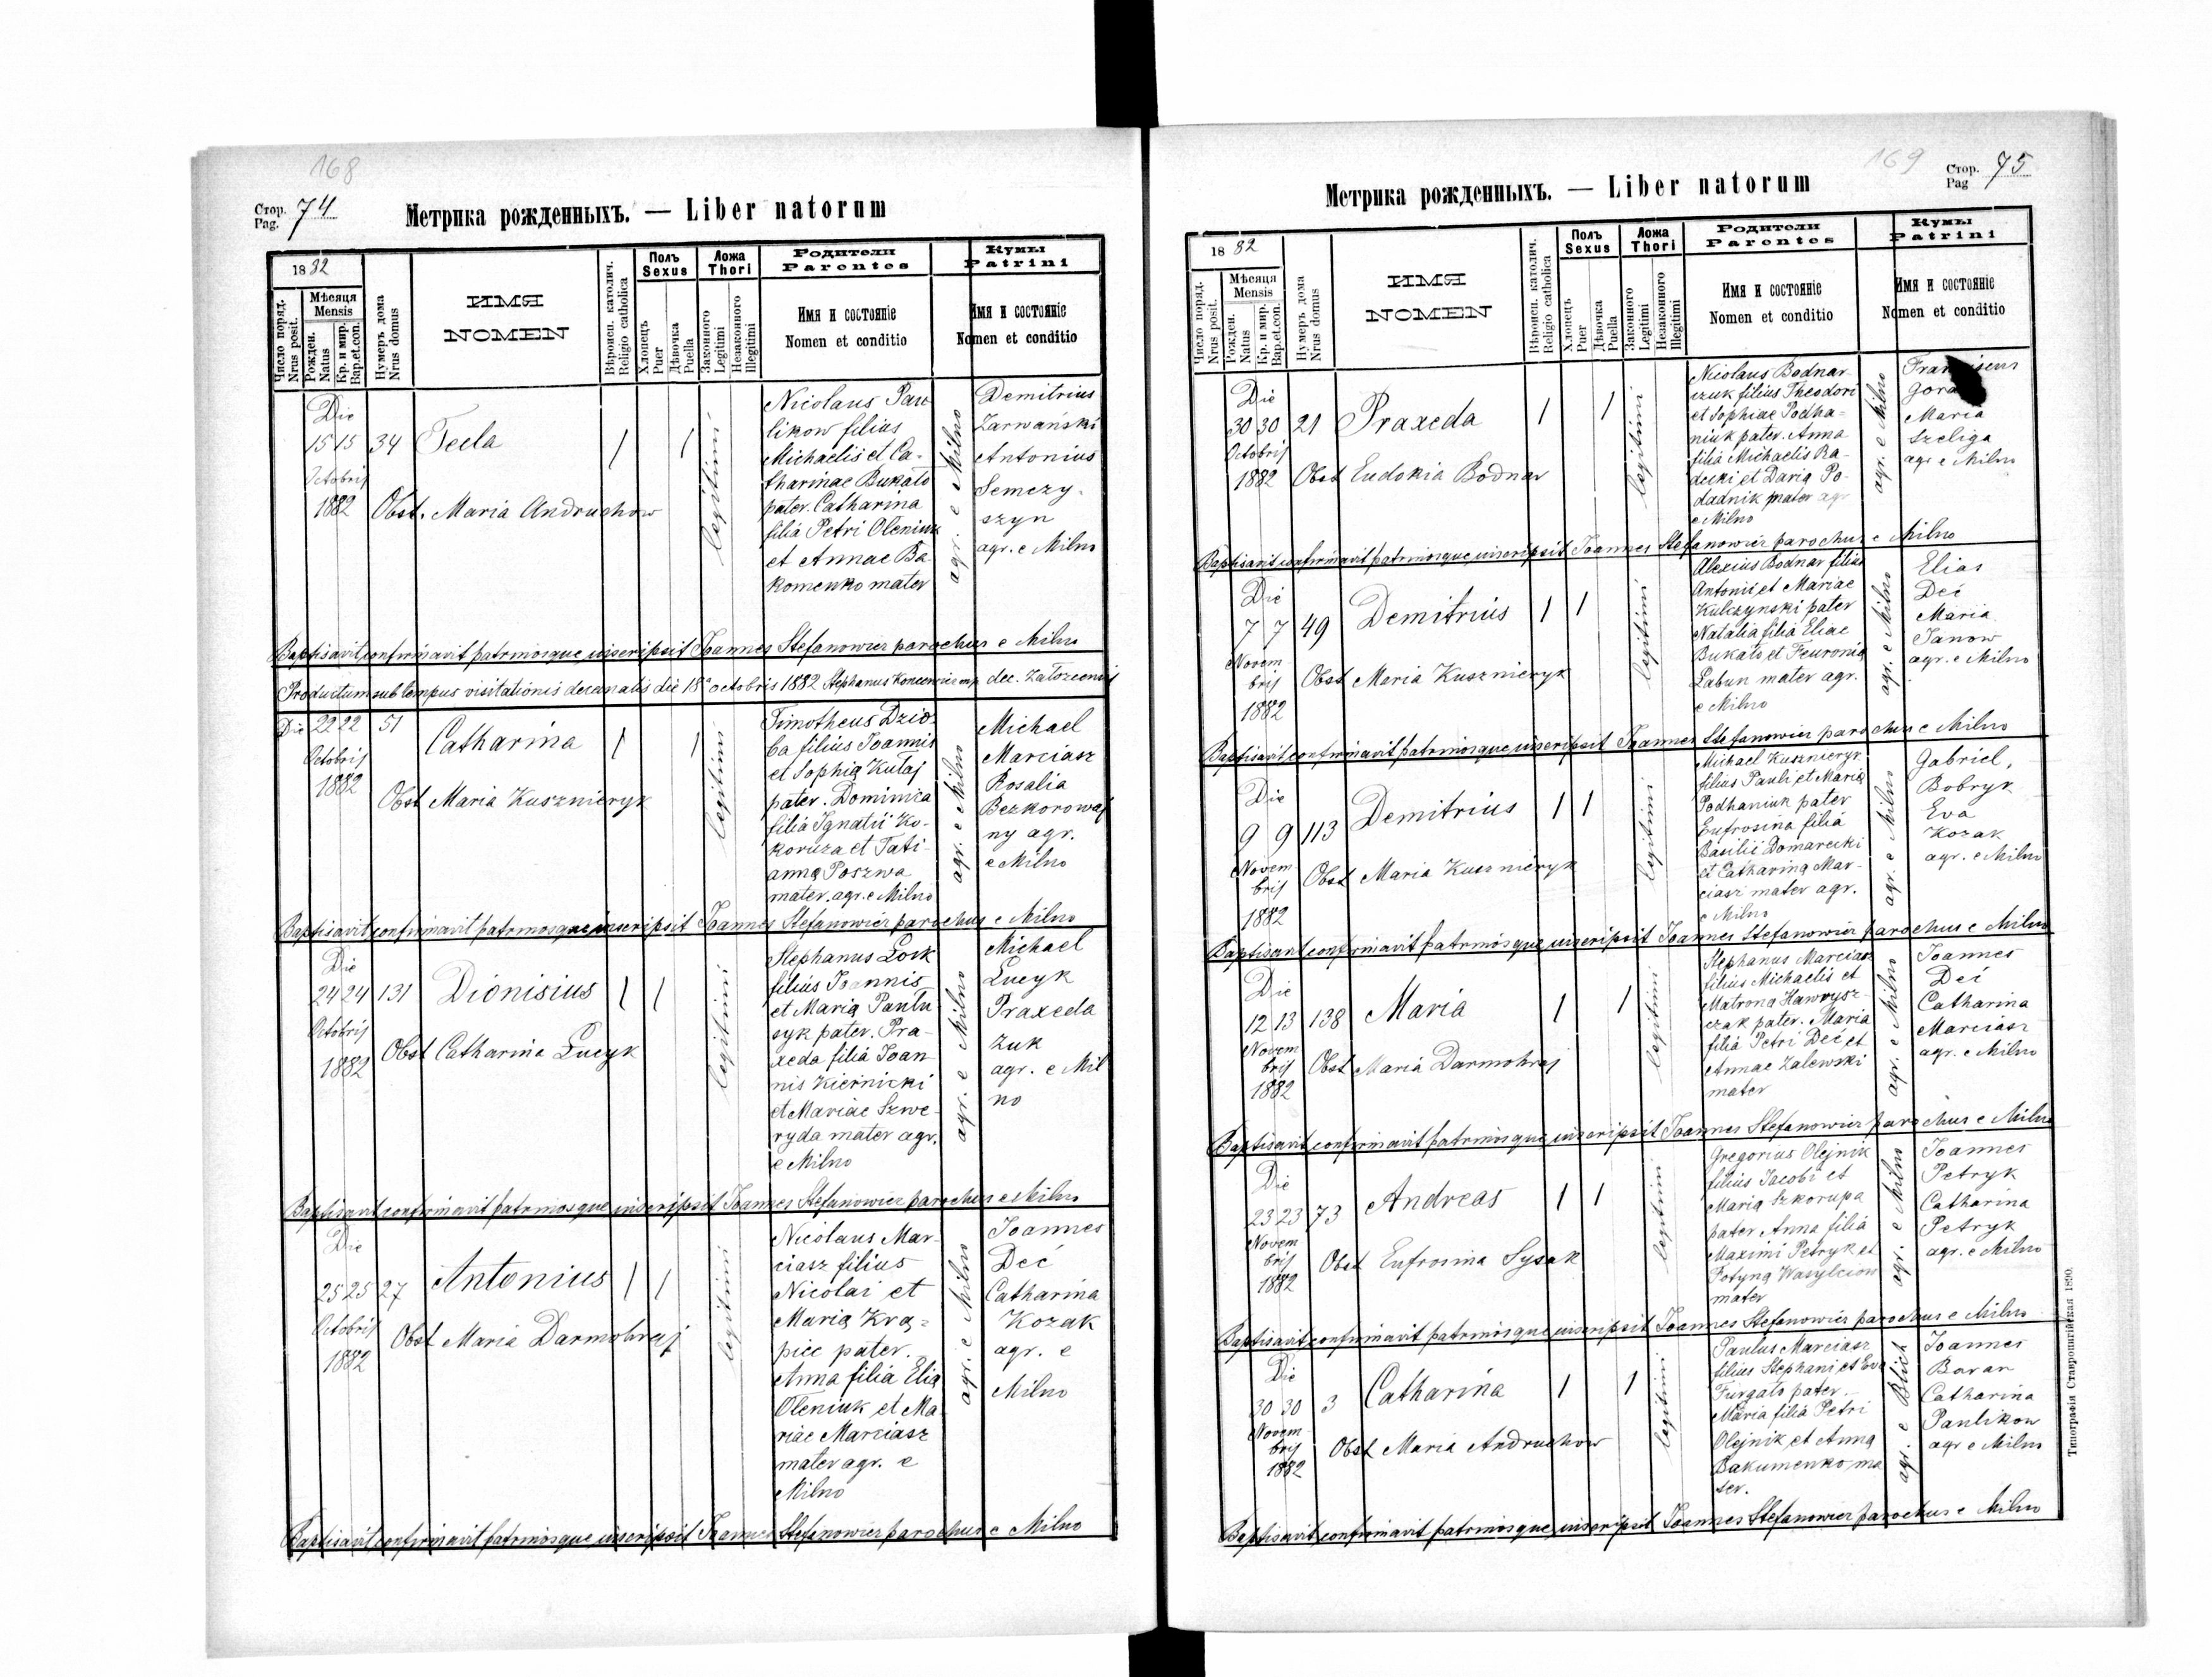 168
Стор. 74
Pag.
Метрика рожденныхъ. — Liber natorum
1882
Число поряд. Nrus posit.
Мѣсяця
Mensis
Рожден. Natus
Кр. и мир. Bap.et.con.
Нумеръ дома Nrus domus
ИМЯ
NOMEN
Вѣроисп. католич. Religio catholica
Полъ
Sexus
Хлопецъ Puer
Дѣвочка Puella
Ложа
Thori
Законного Legitimi
Незаконного Illegitimi
Родители
Parentes
Имя и состоянiе
Nomen et conditio
Кумы
Patrini
Имя и состоянiе
Nomen et conditio
Die
15 15 34 Tecla 1 1
Octobrij
1882 Obst. Maria Andruchow
legitimi
Nicolaus Paw
likow filius
Michaelis et Ca-
tharinae Bukato
pater. Catharina
filia Petri Oleniuk
et Annae Ba-
komenko mater
agr. e Milno
Demitrius
Zarwański
Antonius
Semczy-
szyn
agr. e Milno
Baptisavit confirmavit patrinosque inscripsit Joannes Stefanowicz parochus e Milno
Productum sub tempus visitationis decanalis die 18a octobris 1882 Stephanus Koncewicz mp dec. Zalozcensis
Die 22 22 51 Catharina 1 1
Octobrij
1882 Obst Maria Kusznieryk
legitimi
Timotheus Dzio
ba filius Joannis
et Sophią Kutaj
pater. Dominica
filia Ignatii Ko-
koruza et Tati-
anną Poszwa
mater. agr. e Milno
agr. e Milno
Michael
Marciasz
Rosalia
Bezkorowaj
ny agr.
e Milno
Baptisavit confirmavit patrinosque inscripsit Joannes Stefanowicz parochus e Milno
Die
24 24 131 Dionisius 1 1
Octobrij
1882 Obst Catharina Lucyk
legitimi
Stephanus Losk
filius Joannis
et Maria Pantu
syk pater. Pra-
xeda filia Joan-
nis Kiernicki
et Mariae Szwe-
ryda mater agr.
e Milno
agr. e Milno
Michael
Lucyk
Praxeda
Zuk
agr. e Mil
no
Baptisavit confirmavit patrinosque inscripsit Joannes Stefanowicz parochus e Milno
Die
25 25 27 Antonius 1 1
Octobrij
1882 Obst Maria Darmohraj
legitimi
Nicolaus Mar-
ciasz filius
Nicolai et
Marią Krą-
picc pater.
Anna filia Elią
Oleniuk et Ma
riae Marciasz
mater agr. e
Milno
agr. e Milno
Joannes
Deć
Catharina
Kozak
agr. e
Milno
Baptisavit confirmavit patrinosque inscripsit Joannes Stefanowicz parochus e Milno
169
Стор. 75
Pag
Метрика рожденныхъ. — Liber natorum
1882
Число поряд. Nrus posit.
Мѣсяця
Mensis
Рожден. Natus
Кр. и мир. Bap.et.con.
Нумеръ дома Nrus domus
ИМЯ
NOMEN
Вѣроисп. католич. Religio catholica
Полъ
Sexus
Хлопецъ Puer
Дѣвочка Puella
Ложа
Thori
Законного Legitimi
Незаконного Illegitimi
Родители
Parentes
Имя и состоянiе
Nomen et conditio
Кумы
Patrini
Имя и состоянiе
Nomen et conditio
Die
30 30 21 Praxeda 1 1
Octobrij
1882 Obst Eudokia Bodnar
legitimi
Nicolaus Bodnar-
czuk filius Theodori
et Sophiae Podha-
niuk pater. Anna
filia Michaelis Ra-
decki et Darią Po-
dadnik mater agr
e Milno
agr. e Milno
Maria
Szeliga
agr e Milno
Baptisavit confirmavit patrinosque inscripsit Joannes Stefanowicz parochus e Milno
Die
7 7 49 Demitrius 1 1
Novem
brij
1882
Obst Maria Kusznieryk
legitimi
Alexius Bodnar filius
Antonii et Mariae
Kulczynski pater
Natalia filia Eliae
Bukato et Feuronią
Labun mater agr.
e Milno
agr. e Milno
Elias
Deć
Maria
Janow
agr. e Milno
Baptisavit confirmavit patrinosque inscripsit Joannes Stefanowicz parochus e Milno
Die
9 9 113 Demitrius 1 1
Novem
brij
1882
Obst Maria Kusznieryk
legitimi
Michael Kusznieryk
filius Pauli et Marią
Podhaniuk pater
Eufrosina filia
Basilii Domarecki
et Catharina Mar-
ciasz mater agr.
e Milno
agr. e Milno
Gabriel,
Bobryk
Eva
Kozak
agr. e Milno
Baptisavit confirmavit patrinosque inscripsit Joannes Stefanowicz parochus e Milno
Die
12 13 138 Maria 1 1
Novem
brij
1882
Obst Maria Darmohraj
legitimi
Stephanus Marciasz
filius Michaelis et
Matroną Hawrysz-
czak pater. Maria
filia Petri Deć et
Annae Zalewski
mater
agr. e Milno
Joannes
Deć
Catharina
Marciasz
agr. e Milno
Baptisavit confirmavit patrinosque inscripsit Joannes Stefanowicz parochus e Milno
Die
23 23 73 Andreas 1 1
Novem
brij
1882
Obst Eufrosina Sysak
legitimi
Gregorius Olejnik
filius Jacobi et
Marią Szkorupa
pater. Anna filia
Maximi Petryk et
Fotyną Wasylciow
mater
agr. e Milno
Joannes
Petryk
Catharina
Petryk
agr. e Milno
Baptisavit confirmavit patrinosque inscripsit Joannes Stefanowicz parochus e Milno
Die
30 30 3 Catharina 1 1
Novem
brij
1882
Obst Maria Andruchow
legitimi
Paulus Marciasz
filius Stephani et Eva
Furgato pater.
Maria filia Petri
Olejnik et Anną
Bakumenko ma
ter.
agr. e Blich
Joannes
Baran
Catharina
Pantikow
agr e Milno
Baptisavit confirmavit patrinosque inscripsit Joannes Stefanowicz parochus e Milno
Типографія Ставропигійская 1890.